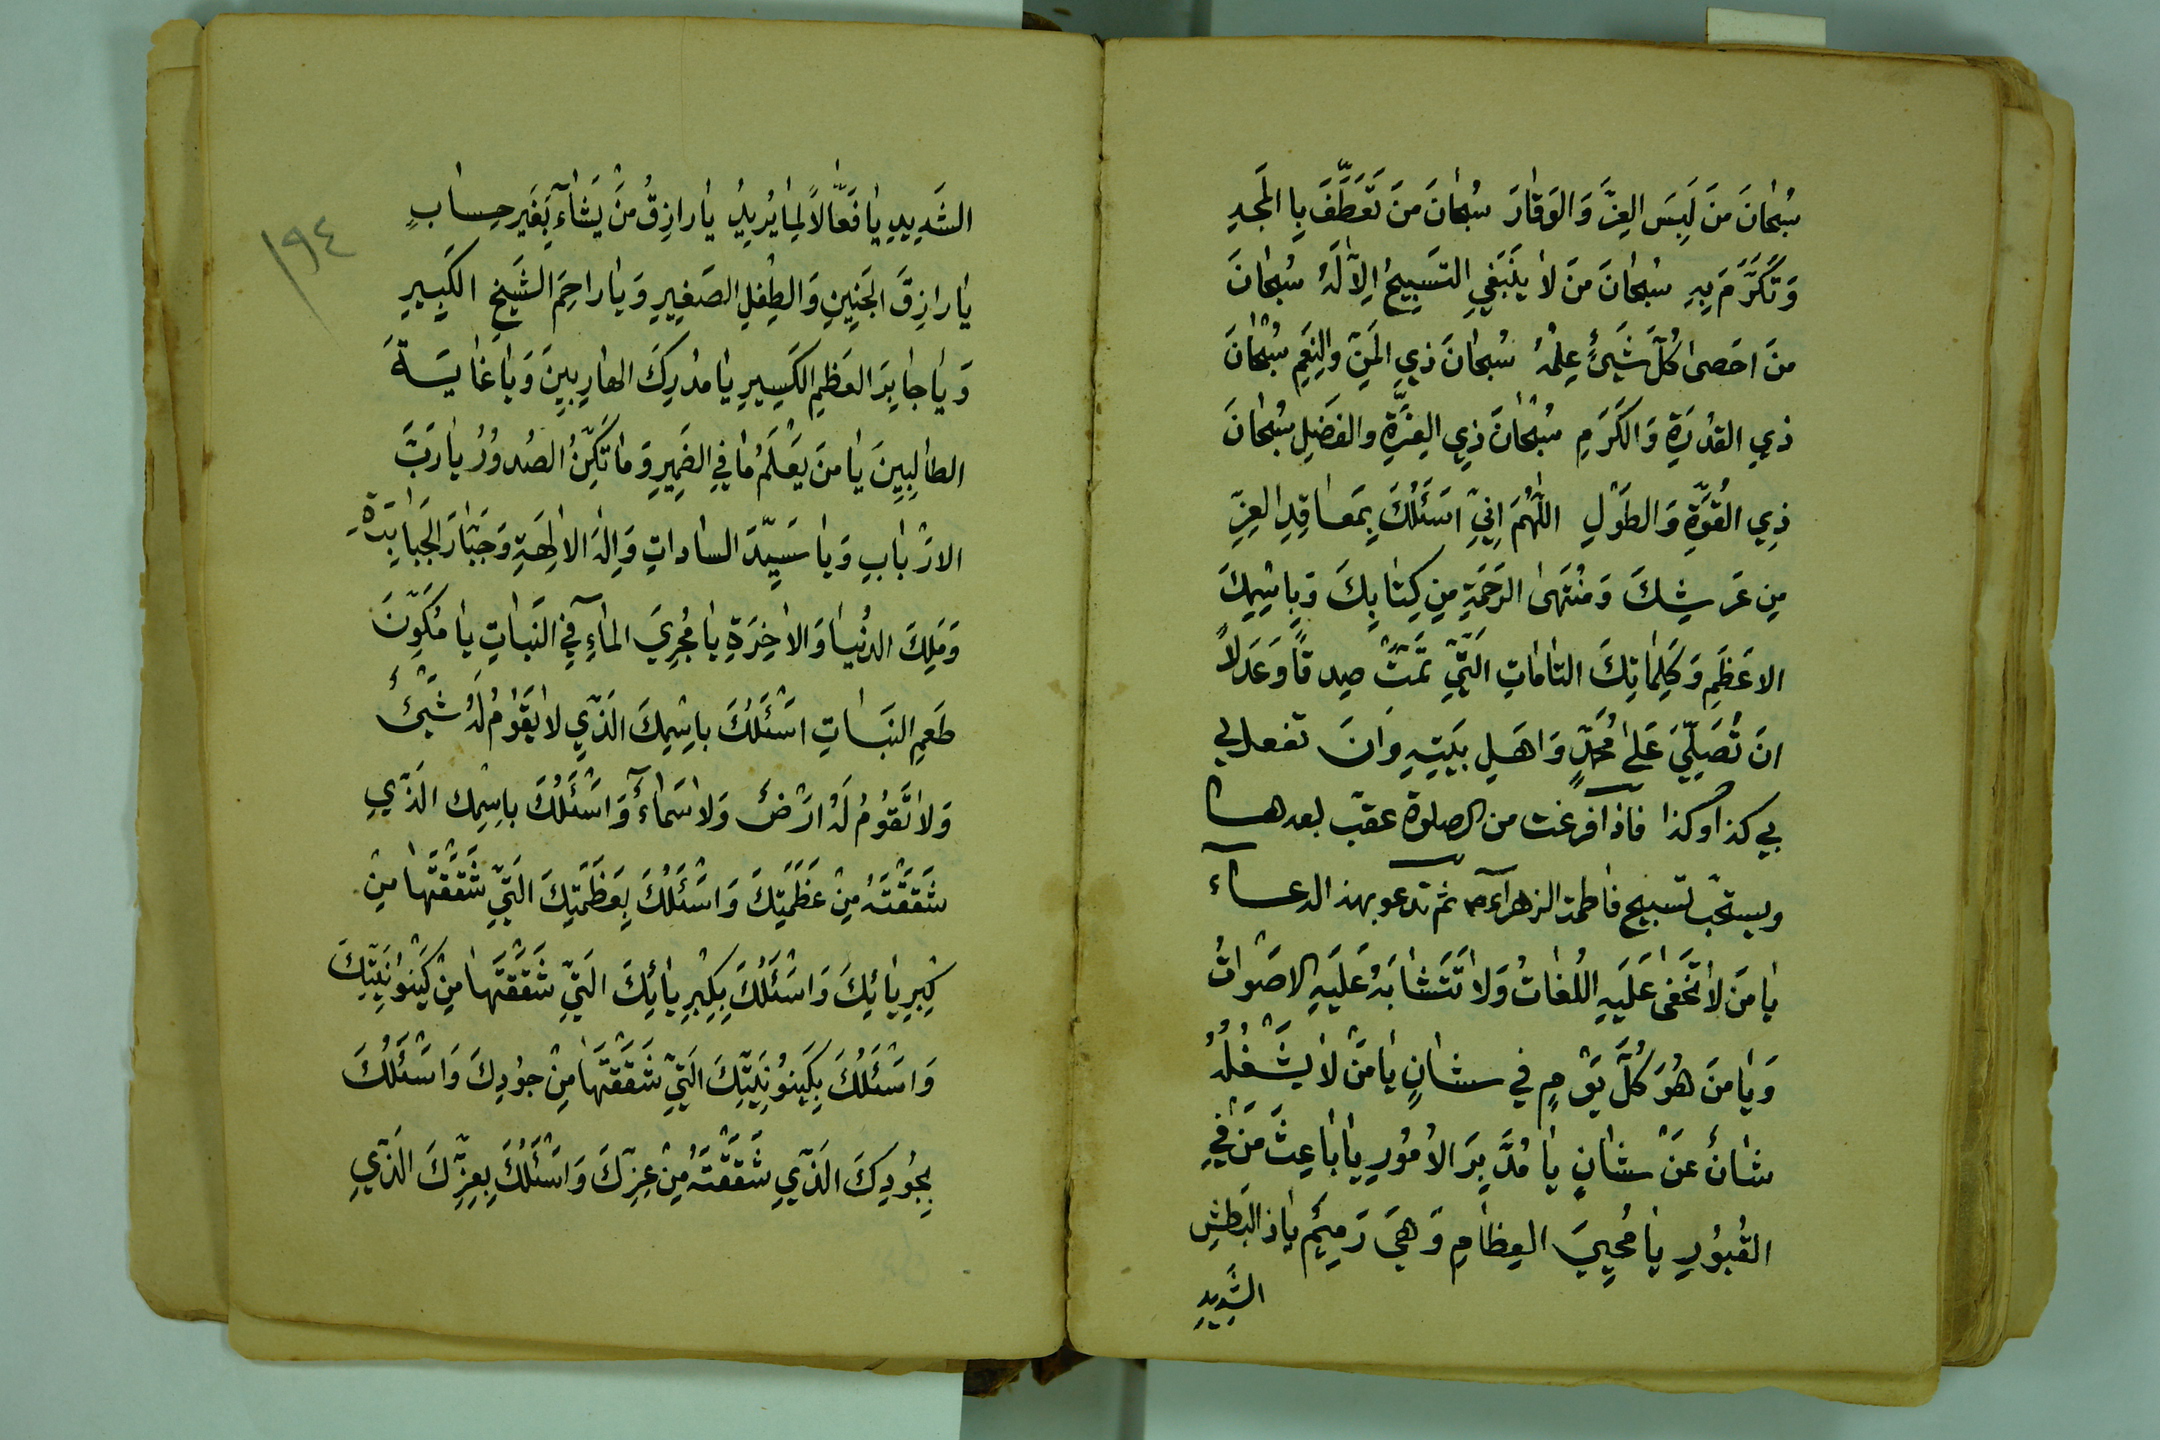 سُبْحَانَ مَنْ لَبِسَ العِزَّ وَالوَقَارَ سُبْحَانَ مَنْ تَعَطَّفَ بِالمَجْدِ
وَتَكَرَّمَ بِهِ سُبْحَانَ مَنْ لَا يَنْبَغِي التَسْبِيحُ اِلَّا لَهُ سُبْحَانَ
مَنْ اَحْصَى كُلَّ شَيْءٍ عِلْمُهُ سُبْحَانَ ذِي المَنِّ وَالنِعَمِ سُبْحَانَ
ذِي القُدْرَةِ وَالكَرَمِ سُبْحَانَ ذِي العِزَّةِ وَالفَضْلِ سُبْحَانَ
ذِي القُوَّةِ وَالطَوْلِ اَللّٰهُمَّ اِنِّي اَسْئَلُكَ بِمَعَاقِدِ العِزِّ
مِنْ عَرْشِكَ وَمُنْتَهَى الرَحْمَةِ مِنْ كِتَابِكَ وَبِاسْمِكَ
الاَعْظَمِ وَكَلِمَاتِكَ التَامَاتِ الَتِّي تَمَّتْ صِدْقًا وَعَدْلًا
اَنْ تُصَلِّيَ عَلَى مُحَمَّدٍ وَاَهْلِ بَيْتِهِ وَاَنْ تفعل بي
بي كذا وكذا فاذا فرغت من الصلوة عقب بعدها
ويستحب تسبيح فاطمة الزهراء ثم تدعو بهذا الدعاء
يَا مَنْ لَا تَخْفَى عَلَيْهِ اللُغَاتُ وَلَا تَتَشَابَهُ عَلَيْهِ الاَصْوَاتُ
وَيَا مَنْ هُوَ كُلَّ يَوْمٍ فِي شَانٍ يَا مَنْ لَا يَشْغَلُهُ
شَانٌ عَنْ شَانٍ يَا مُدَبِّرَ الاُمُورِ يَا بَاعِثَ مَنْ فِي
القُبُورِ يَا مُحْيِيَ العِظَامِ وَهِيَ رَمِيْمٌ يَا ذَا البَطْشِ
الشَدِيدِ
١٩٤
الشَدِيدِ يَا فَعَّالًا لِمَا يُرِيدُ يَا رَازِقُ مَنْ يَشَاءُ بِغَيْرِ حِسَابٍ
يَا رَازِقَ الجَنِينِ وَالطِفْلِ الصَغِيرِ وَيَا رَاحِمَ الشَيْخِ الكَبِيرِ
وَيَا جَابِرَ العَظْمِ الكَسِيرِ يَا مُدْرِكَ الهَارِبِينَ وَيَا غَايَةَ
الطَالِبِينَ يَا مَنْ يَعْلَمُ مَا فِي الضَمِيرِ وَمَا تُكِنُّ الصُدُورُ يَا رَبَّ
الاَرْبَابِ وَيَا سَيِّدَ السَادَاتِ وَاِلٰهَ الاٰلِهَةِ وَجَبَّارَ الجَبَابِرَةِ
وَمَلِكَ الدُنْيَا وَالاٰخِرَةِ يَا مُجْرِيَ المَاءِ فِي النَبَاتِ يَا مُكَوِّنَ
طَعْمِ النَبَاتِ اَسْئَلُكَ بِاسْمِكَ الَذّي لَا يَقَوْمُ لَهُ شَيْئٌ
وَلَا تَقُومُ لَهُ اَرْضٌ وَلَا سَمَاءٌ وَاَسْئَلُكَ بِاسْمِكَ الَذّي
شَقَقْتَهُ مِنْ عَظَمَتِكَ وَاَسْئَلُكَ بِعَظَمَتِكَ الَتّي شَقَقْتَهَا مِنْ
كِبْرِيَائِكَ وَاَسْئَلُكَ بِكِبْرِيَائِكَ الَتّي شَقَقْتَهَا مِنْ كَيْنُونِيَّتِكَ
وَاَسْئَلُكَ بِكَيْنُونِيَّتِكَ الَتّي شَقَقْتَهَا مِنْ جُودِكَ وَاَسْئَلُكَ
بِجُودِكَ الَذّي شَقَقْتَهُ مِنْ عِزِّكَ وَاَسْئَلُكَ بِعِزِّكَ الَذّي